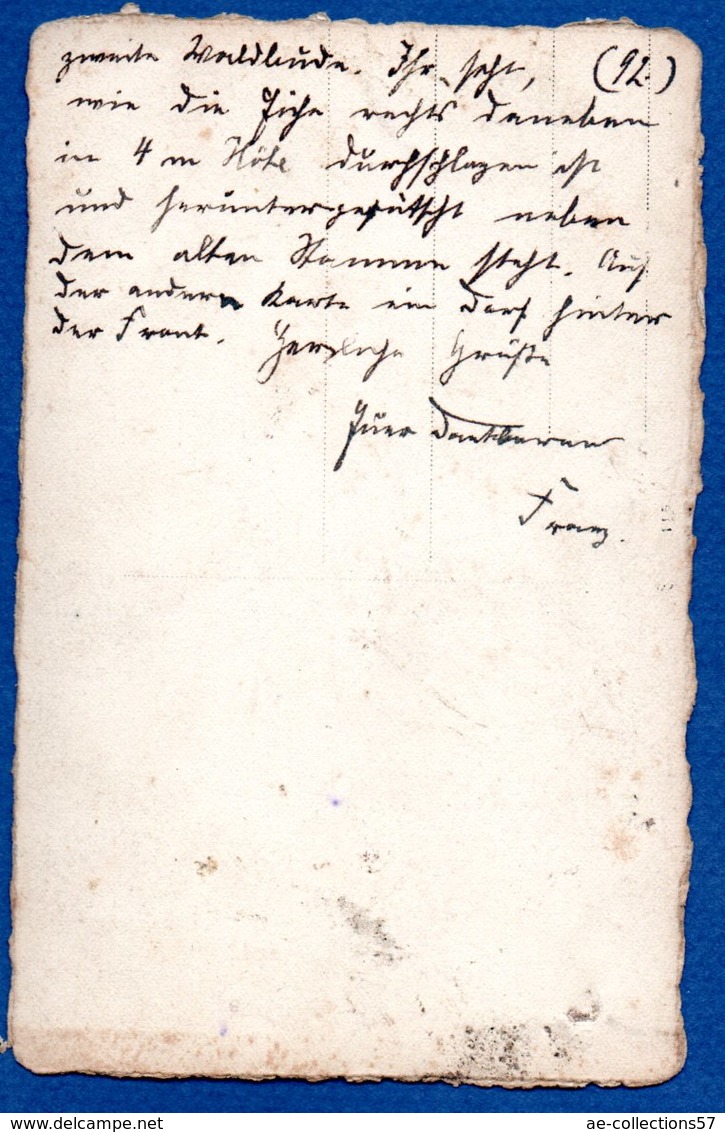 zweite Waldbude. Ihr seht, (92)
wie die Eiche rechts daneben
in 4 m Höhe durchschlagen ist
und heruntergerutscht neben
dem alten Stamme steht. Auf
der andern Karte ein Dorf hinter
der Front. Herzliche Grüße
Euer dankbarer
Franz.
ae-collections57